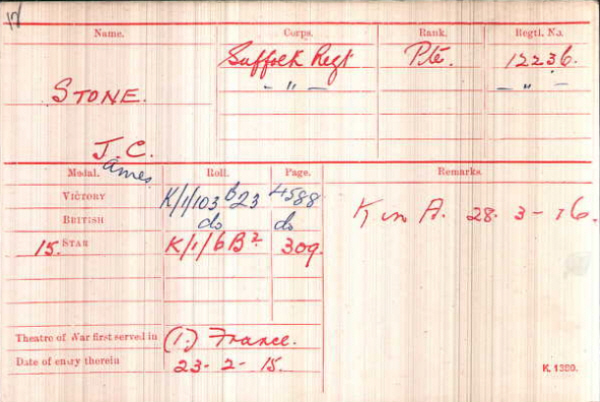 17
Name. Corps. Rank. Regtl. No.
Suffolk Regt Pte. 12236.
- " - - " -
STONE.
J. C.
James
Medal. Roll. Page. Remarks.
VICTORY K/1/103 B23 4588
BRITISH do do K in A. 28. 3-16.
15. STAR K/1/6B2 309.
Theatre of War first served in (1.) France.
Date of entry therein 23-2-15.
K. 1380.